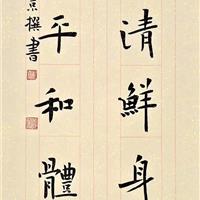 清鮮身
平和體
撰書